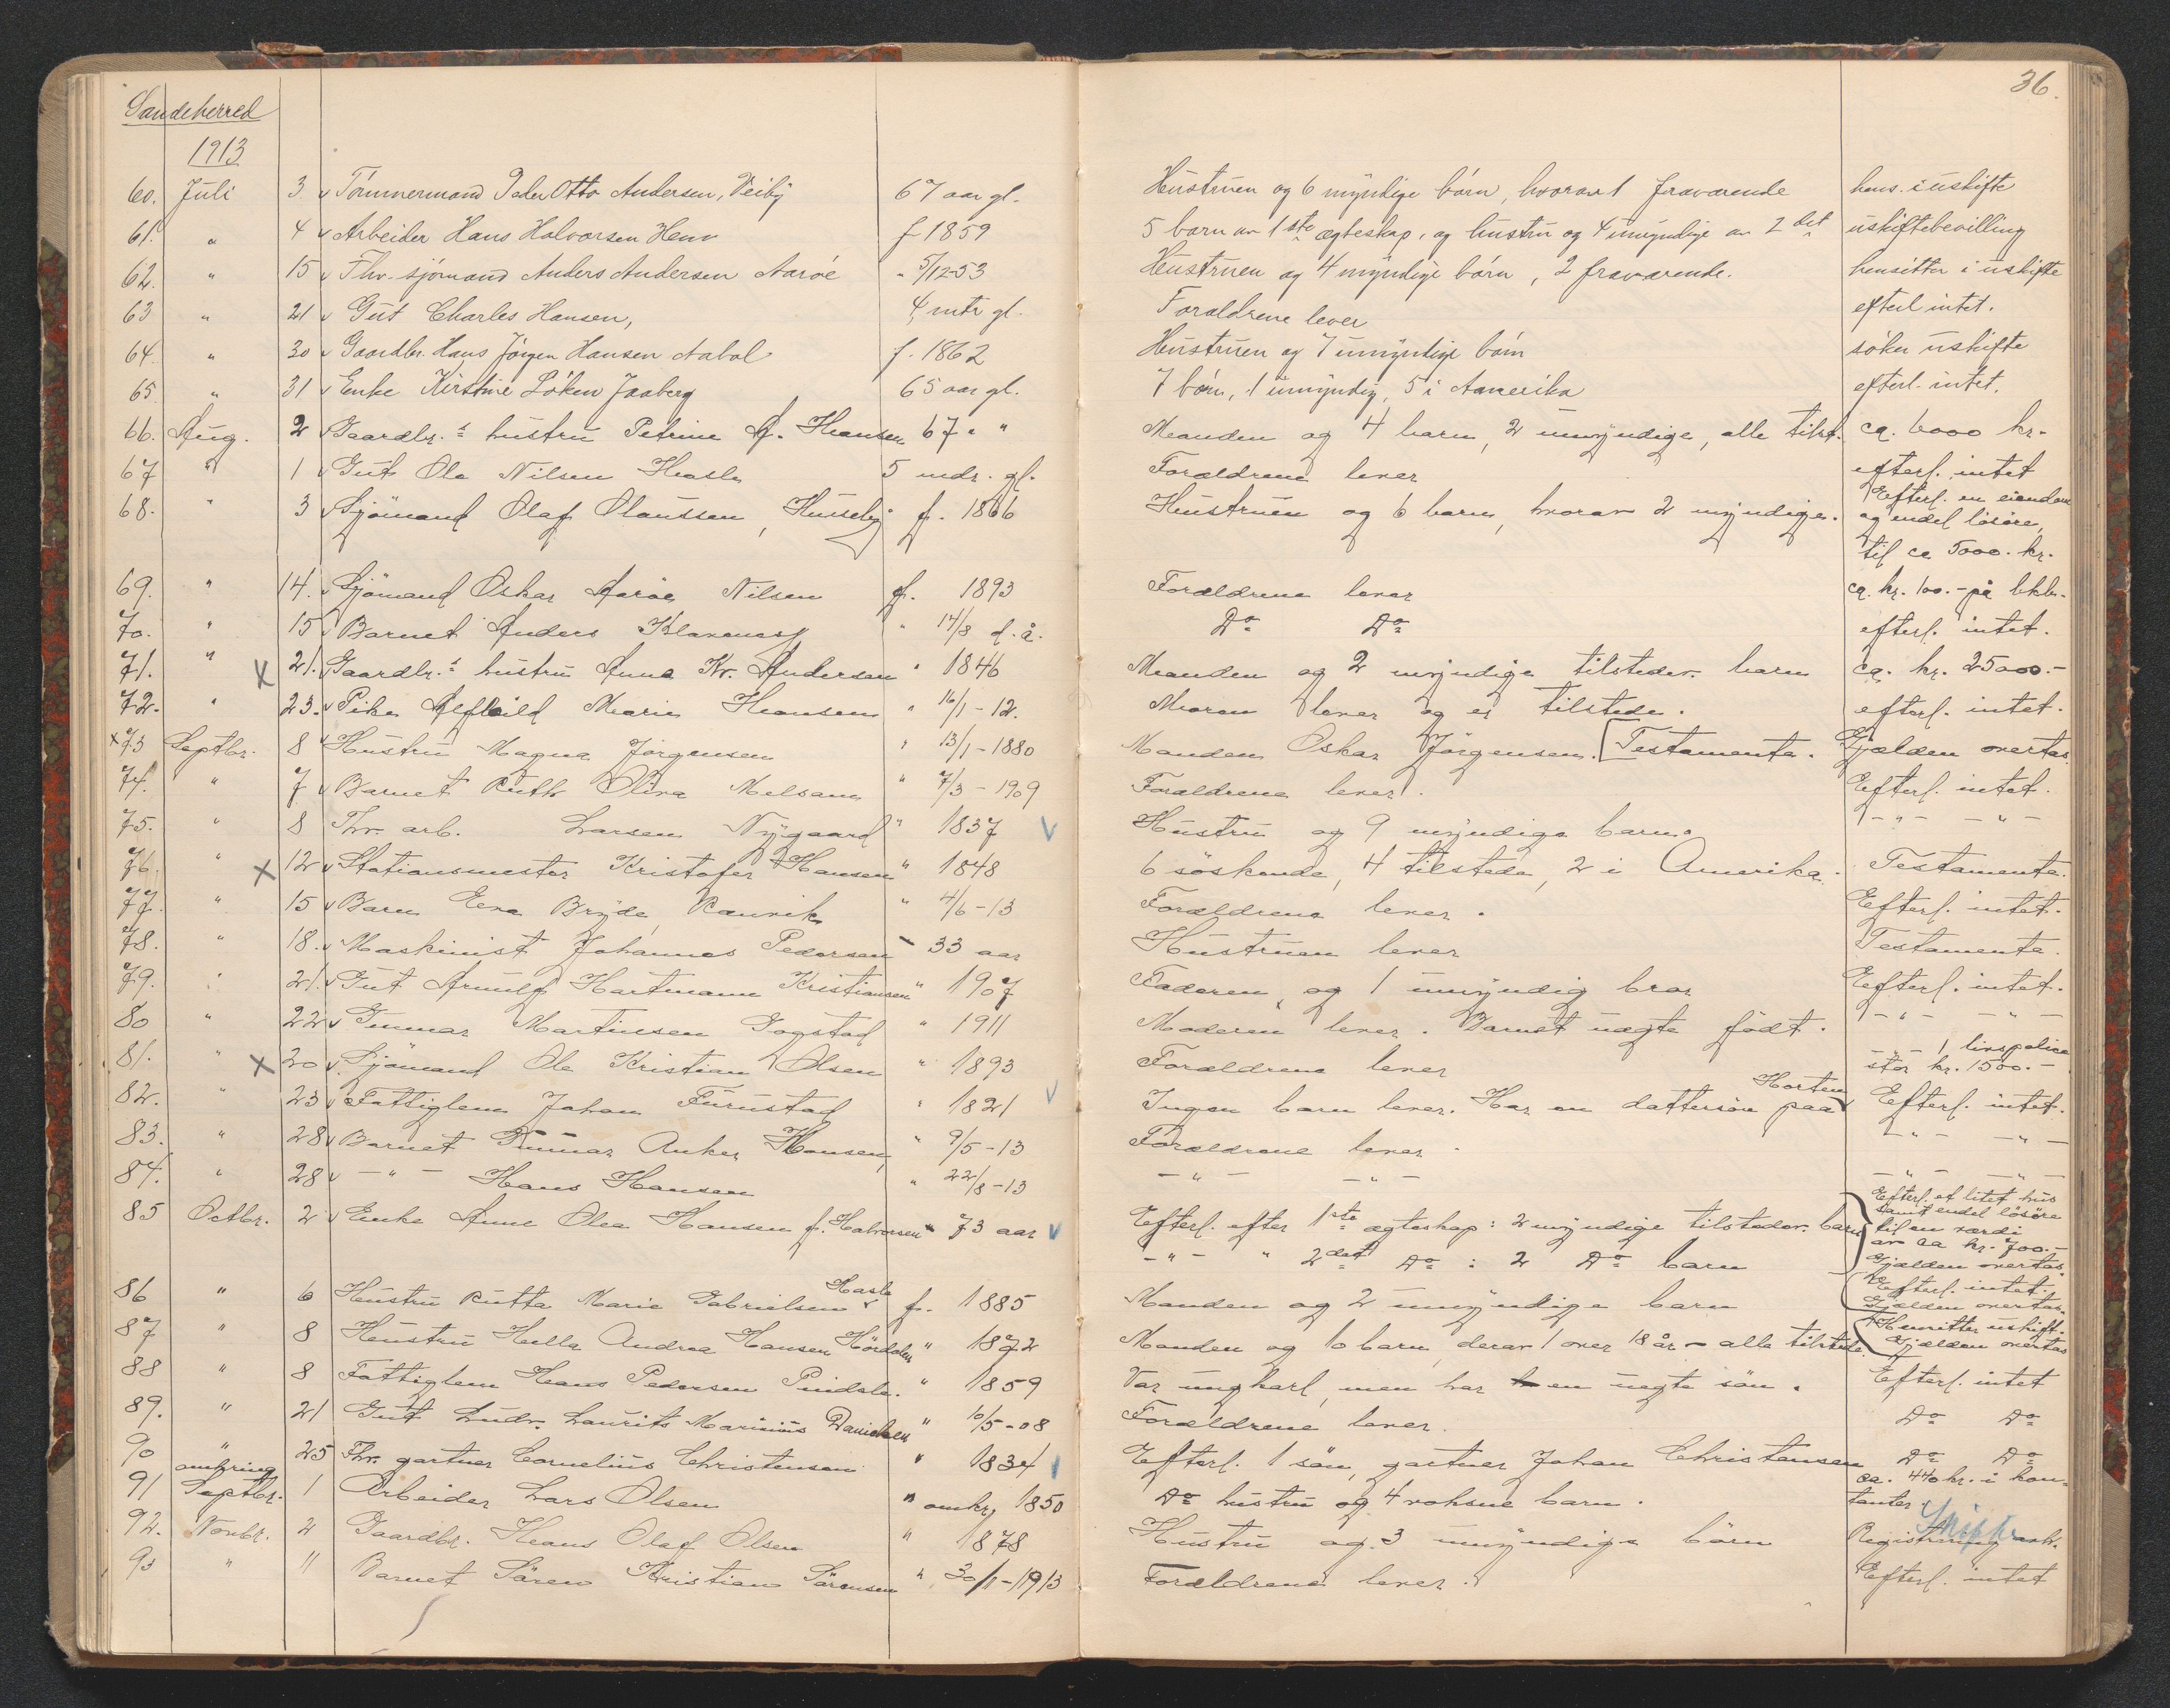 36.
Sandeherred
1913
60. Juli 3 Tömmermand Peder Otto Andersen, Veiby 67 aar gl. Hustruen og 6 myndige börn, hvorav 1 fraværende hens. i uskifte
61. " 4 Arbeider Hans Halvorsen Hem f 1859 5 barn av 1ste ægteskap, og hustru og 4 umyndige av 2det uskiftebevilling
62. " 15 Fhv. sjömand Anders Andersen Aaröe " 5/12-53 Hustruen og 4 myndige börn, 2 fraværende. hensitter i uskifte
63 " 21 Gut Charles Hansen, 4 mtr gl. Forældrene lever efterl intet.
64. " 30 Gaardbr. Hans Jörgen Hansen Aabol f. 1862 Hustruen og 7 umyndige börn söker uskifte
65. " 31 Enke Kirstine Löken Jaaberg 65 aar gl. 7 börn, 1 umyndig, 5 i Amerika efterl. intet.
66. Aug. 2 Gaardbr.s hustru Petrine A. Hansen 67 " " Manden og 4 barn, 2 umyndige, alle tilst. ca. 6000 kr.
67 " 1 Gut Ole Nilsen Hasle 5 mdr. gl. Forældrene lever efterl. intet
68. " 3 Sjömand Olaf Olaussen, Huseby f. 1866 Hustruen og 6 barn, hvorav 2 myndige. Efterl. en eiendom
og endel lösöre,
til ca 5000. kr.
69. " 14. Sjömand Oskar Aaröe Nilsen f. 1893 Forældrene lever ca. kr. 100.- på bkb.
70. " 15 Barnet Anders Klavenes " 14/8 d. å. Do Do efterl. intet.
71. " x 21. Gaardbr.s hustru Anna Kr. Andersen " 1846 Manden og 2 myndige tilstedev. barn ca. kr. 25000.-
72. " 23. Pike Alfhild Marie Hansen " 16/1-12. Moren lever og er tilstede. efterl. intet.
x 73 Septbr. 8 Hustru Magna Jörgensen " 13/1-1880 Manden Oskar Jörgensen. [Testamente. Gjælden overtas
74. " 7 Barnet Ruth Oliva Melsom " 7/3-1909 Forældrene lever. Efterl. intet.
75. " 8 Fhv. arb. Larsen Nygaard " 1837 Hustru og 9 myndige barn - " - - " -
76. " x 12 Stationsmester Kristofer Hansen " 1848 6 söskende, 4 tilstede, 2 i Amerika. Testamente.
77. " 15 Barn Eva Bryde, Ranvik " 4/6-13 Forældrene lever. Efterl. intet.
78. " 18. Maskinist Johannes Pedersen - 33 aar Hustruen lever Testamente.
79. " 21. Gut Arnulf Hartmann Kristiansen " 1907 Faderen og 1 umyndig bror Efterl. intet.
80 " 22 Gunnar Martinsen Gogstad " 1911 Moderen lever. Barnet uægte födt. - " - - " -
81. " x 20 Sjömand Ole Kristian Olsen " 1893 Forældrene lever - " - 1 livspolice
stor kr. 1500.-
82. " 23 Fattiglem Johan Furustad " 1821 Ingen barn lever. Har en dattersön paa Horten Efterl. intet.
83. " 28 Barnet Gunnar Anker Hansen " 9/5-13 Forældrene lever. - " - - " -
84. " 28 - " - Hans Hansen " 22/8-13 - " - - " - - " - - " -
85 Octbr. 2 Enke Anne Olea Hansen f. Halvorsen " 73 aar Efterl. efter 1ste ægteskap: 2 myndige tilstedev. barn Efterl. et litet hus
samt endel lösöre
til en værdi
av ca kr. 700.-
- " - " 2det Do : 2 Do barn Gjælden overtas.
86 " 6 Hustru Rutta Marie Gabrielsen Hasle f. 1885 Manden og 2 umyndige barn Efterl. intet.
Gjælden overtas.
87 " 8 Hustru Hella Andrea Hansen Hördalen " 1872 Manden og 10 barn, derav 1 over 18 år - alle tilstede. Hensitter uskift.
Gjælden overtas
88 " 8 Fattiglem Hans Pedersen Pindsle. " 1859 Var ungkarl, men har en uegte sön. Efterl. intet
89. " 21 Gut Ludv. Laurits Marinius Danielsen " 10/5-08 Forældrene lever. Do Do
90 " 25 Fhv. gartner Cornelius Christensen " 1834 Efterl. 1 sön, gartner Johan Christensen Do Do
91 omkring Septbr. 1 Arbeider Lars Olsen " omkr. 1850 Do hustru og 4 voksne barn. ca. 440 kr. i kon-
tanter.
92. Novbr. 2 Gaardbr. Hans Olaf Olsen " 1878 Hustru og 3 umyndige börn Registrering
Skifte
93 " 11 Barnet Sören Kristian Sörensen " 30/1-1913 Forældrene lever. Efterl. intet